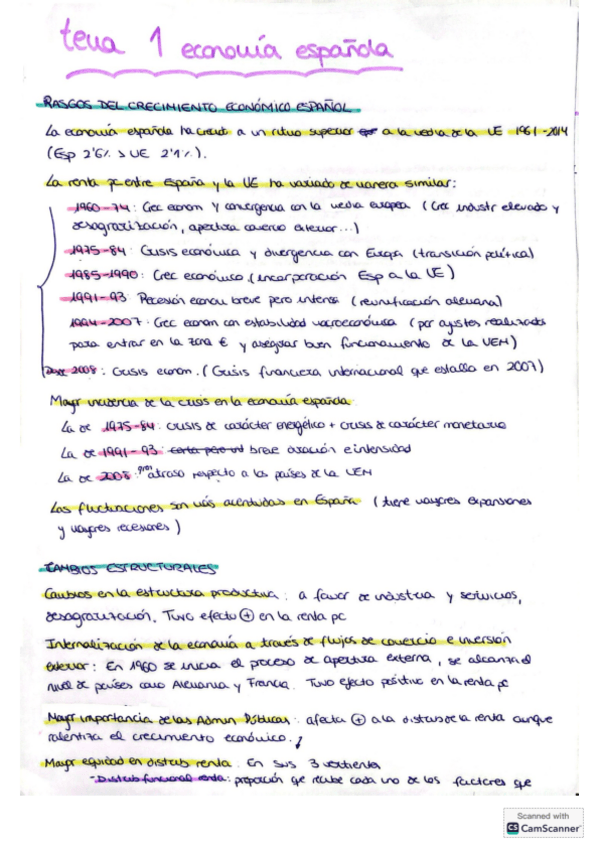 tema 1 economía española
RASGOS DEL CRECIMIENTO ECONÓMICO ESPAÑOL
La economía española ha crecido a un ritmo superior a la media de la UE 1961-2014
(Esp 2'6% > UE 2'1%).
La renta pc entre España y la UE ha variado de manera similar:
1960-74: Crec econom y convergencia con la media europea (Crec industr elevado y
desagrarización, apertura comercio exterior...)
1975-84: Crisis económica y divergencia con Europa (transición política)
1985-1990: Crec económico, (incorporación Esp a la UE)
1991-93 Recesión econom breve pero intensa (reunificación alemana)
1994-2007: Crec econom con estabilidad macroeconómica (por ajustes realizados
para entrar en la zona € y asegurar buen funcionamiento de la UEM)
Desde 2008: Crisis econom. (Crisis financiera internacional que estalla en 2007)
Mayor incidencia de la crisis en la economía española
La de 1975-84: crisis de carácter energético + crisis de carácter monetario
La de 1991-93: breve duración e intensidad
La de 2008: atraso respecto a los países de la UEM
Las fluctuaciones son más acentuadas en España (tiene mayores expansiones
y mayores recesiones)
CAMBIOS ESTRUCTURALES
Cambios en la estructura productiva: a favor de industria y servicios,
desagrarización. Tuvo efecto (+) en la renta pc
Internalización de la economía a través de flujos de comercio e inversión
exterior: En 1960 se inicia el proceso de apertura externa, se alcanza el
nivel de países como Alemania y Francia. Tuvo efecto positivo en la renta pc
Mayor importancia de las Admin Públicas: afecta (+) a la distrib de la renta aunque
ralentiza el crecimiento económico.
Mayor equidad en distrib renta. En sus 3 vertientes
-Distrib funcional renta: proporción que recibe cada uno de los factores que
Scanned with
CS CamScanner